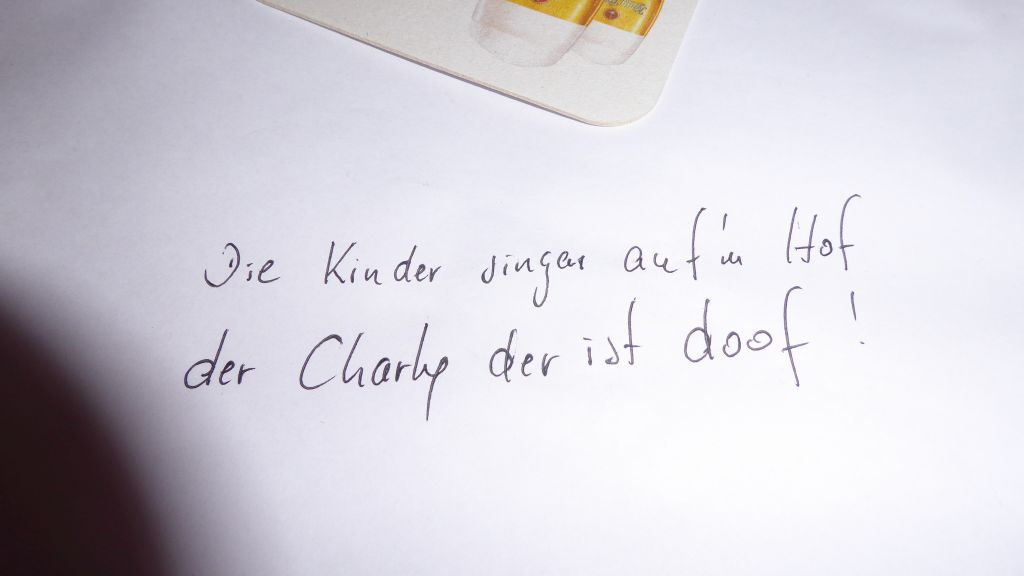 Die Kinder singen auf'm Hof
der Charly der ist doof!